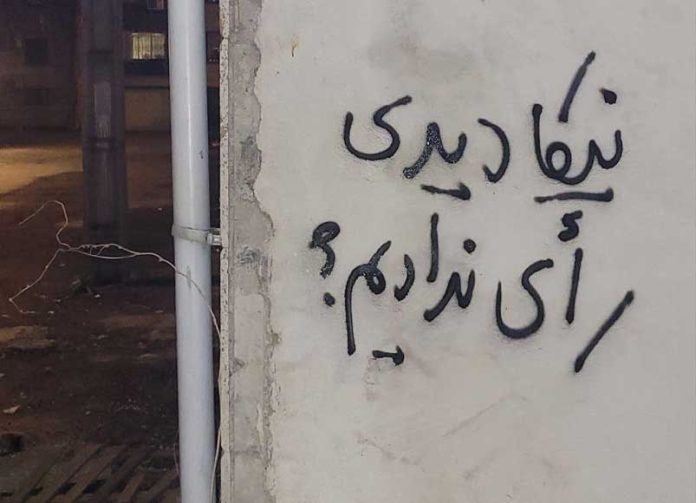 نیکا دیدی
رأی ندادیم؟